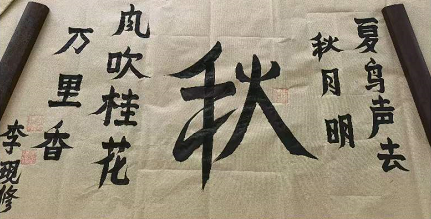 夏鸟声去
秋月明
秋
风吹桂花
万里香
李现修